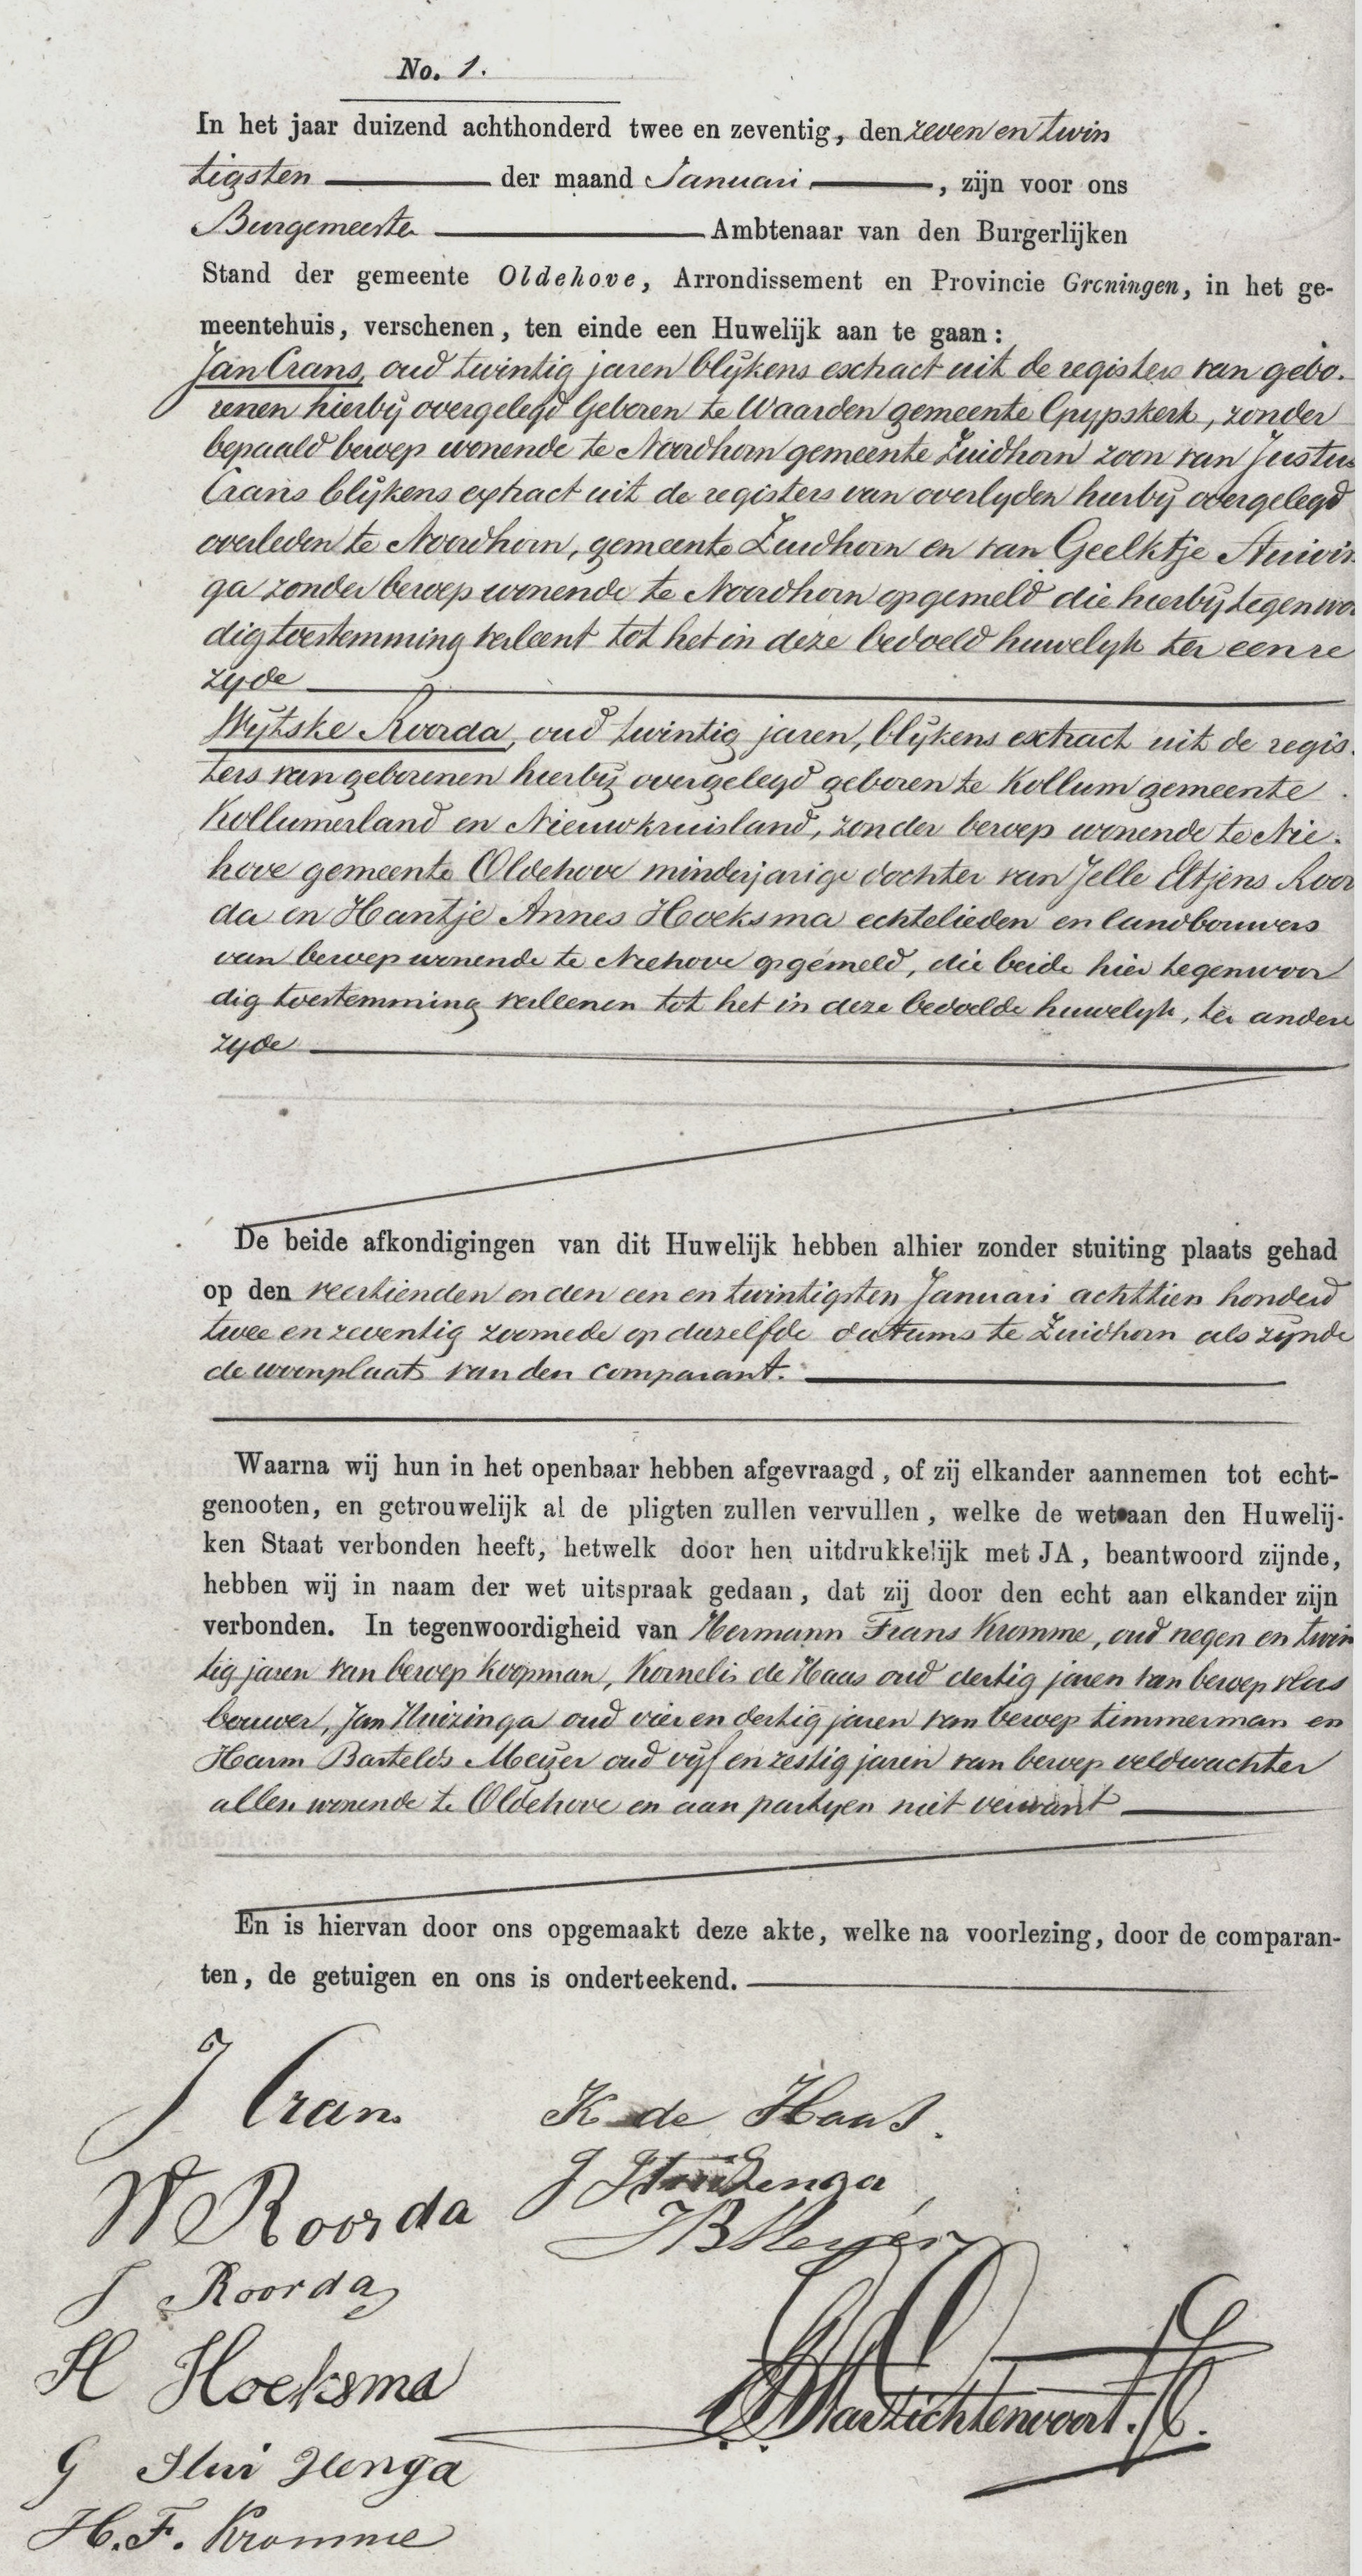 No. 1.
In het jaar duizend achthonderd twee en zeventig, den zeven en twin
tigsten der maand Januari, zijn voor ons
Burgemeester Ambtenaar van den Burgerlijken
Stand der gemeente Oldehove, Arrondissement en Provincie Groningen, in het ge-
meentehuis, verschenen, ten einde een Huwelijk aan te gaan:
Jan Crans, oud twintig jaren blijkens extract uit de registers van gebo.
renen hierbij overgelegd Geboren te Waarden gemeente Grypskerk, zonder
bepaald beroep wonende te Noordhorn gemeente Zuidhorn zoon van Justus
Crans blijkens extract uit de registers van overlyden hierbij overgelegd
overleden te Noordhorn, gemeente Zuidhorn en van Geelktje Stuivin
ga zonder beroep wonende te Noordhorn opgemeld die hierbij tegenwoor
dig toestemming verleent tot het in deze bedoeld huwelyk ter eenre
zyde
Wytske Roorda, oud twintig jaren, blijkens extract uit de regis.
ters van geborenen hierbij overgelegd geboren te Kollum gemeente
Kollumerland en Nieuwkruisland, zonder beroep wonende te Nie.
hove gemeente Oldehove minderjarige dochter van Jelle Eltjens Roor
da en Hantje Annes Hoeksma echtelieden en landbouwers
van beroep wonende te Niehove opgemeld, die beide hier tegenwoor
dig toestemming verleenen tot het in deze bedoelde huwelyk, ter andere
zyde
De beide afkondigingen van dit Huwelijk hebben alhier zonder stuiting plaats gehad
op den veertienden en den een en twintigsten Januari achttien honderd
twee en zeventig zoomede op dezelfde datums te Zuidhorn als zijnde
de woonplaats van den comparant.
Waarna wij hun in het openbaar hebben afgevraagd, of zij elkander aannemen tot echt-
genooten, en getrouwelijk al de pligten zullen vervullen, welke de wet aan den Huwelij-
ken Staat verbonden heeft, hetwelk door hen uitdrukkelijk met JA, beantwoord zijnde,
hebben wij in naam der wet uitspraak gedaan, dat zij door den echt aan elkander zijn
verbonden. In tegenwoordigheid van Hermann Frans Kromme, oud negen en twin
tig jaren van beroep Koopman, Kornelis de Haas oud dertig jaren van beroep vlas
bouwer, Jan Huizinga oud vier en dertig jaren van beroep timmerman en
Harm Bartelds Meijer oud vijf en zestig jaren van beroep veldwachter
allen wonende te Oldehove en aan partyen niet verwant
En is hiervan door ons opgemaakt deze akte, welke na voorlezing, door de comparan-
ten, de getuigen en ons is onderteekend.
J Crans
K de Haas.
W Roorda
J Huizenga
H B Meijer
J Roorda
H Hoeksma
G Stui venga
H. F. Kromme